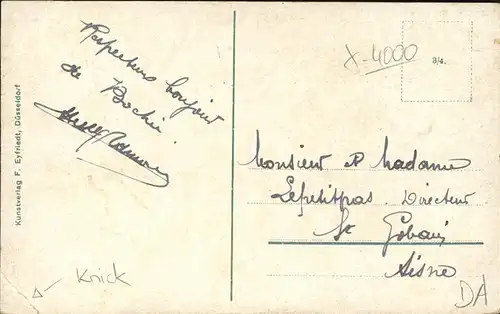 Respectueux bonjour
de Bochie
Kunstverlag F. Eyfriedt, Düsseldorf
X-4000
3/4.
Monsieur et Madame
Lepetitpas. Directeur
St Gobain
Aisne
Knick
DA